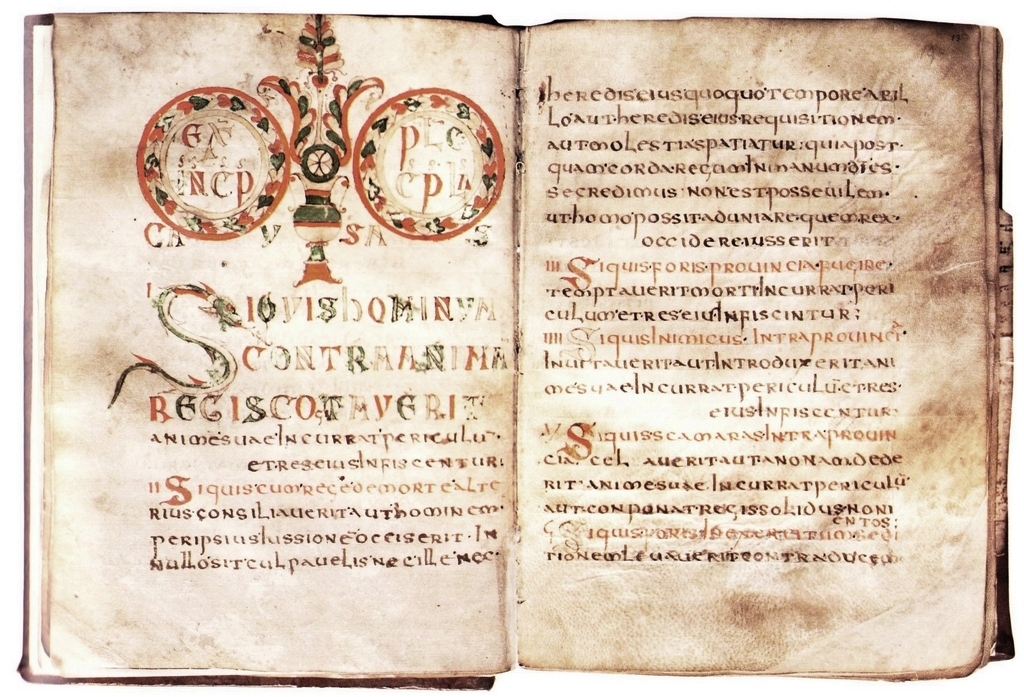 CAVSAS
I SIQVIS hOMINVM
CONTRA ANIMA
REGIS COGTAVERIT
animesuae Incurrat periculu
et res eius Infiscentur
II Siquis cum rege de morte alte
rius consiliaverit aut hominem
per ipsius Iussione occiserit. In
nullo sit culpavelis nec ille nec
heredis eius quoquo tempore ab il
lo aut heredis eius requisitionem
aut molestias patiatur: quia post
quam corda regum In manum di es
se credimus non est possevilem
ut homo possit aduniare quem rex
occidere iusserit
III Siquis foris provincia fugire
temptaverit morti Incurrat peri
culum et res eius Infiscintur;
IIII Siquis Inimicus Intra provincia
Invitaverit aut Introduxerit ani
mesuae Incurrat periculu et res
eius Infiscentur
V Siquis scamaras Intra provin
cia celaverit aut anonam dede
rit anime suae Incurrat periculu
aut conponat regis solidus noni
entos;
Siquis foris in exercitum sedi
tionem levaverit contra ducem